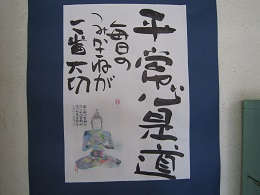 平常心是道
毎日の
つみかさねが
一番大切